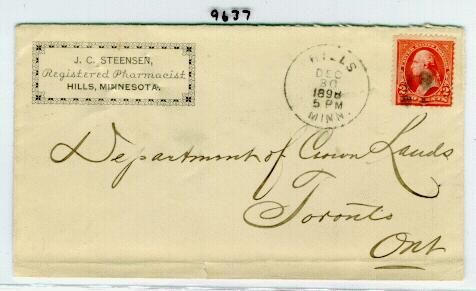 9637
J. C. STEENSEN,
Registered Pharmacist
HILLS, MINNESOTA.
HILLS
DEC
30
1898
5 PM
MINN.
Department of Crown Lands
Toronto
Ont